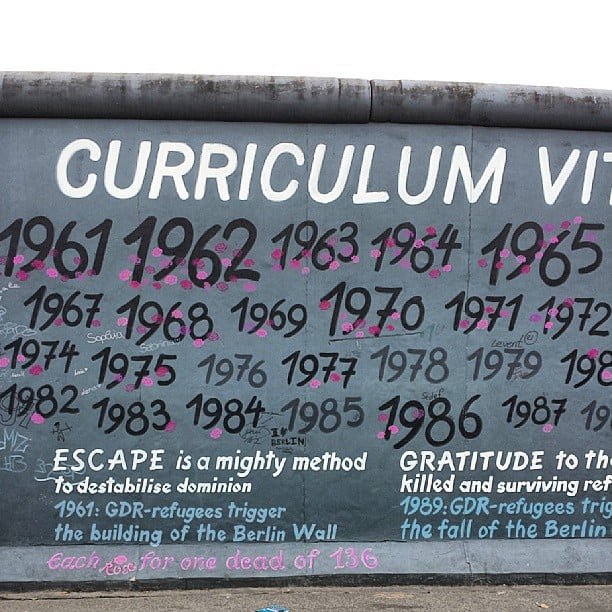 CURRICULUM VIT
1961 1962 1963 1964 1965
1967 1968 1969 1970 1971 1972
1974 1975 1976 1977 1978 1979 198
1982 1983 1984 1985 1986 1987 19
Sophia
Levent
I ♥
BERLIN
ESCAPE is a mighty method
to destabilise dominion
1961: GDR-refugees trigger
the building of the Berlin Wall
GRATITUDE to th
killed and surviving ref
1989: GDR-refugees trig
the fall of the Berlin
Each rose for one dead of 136